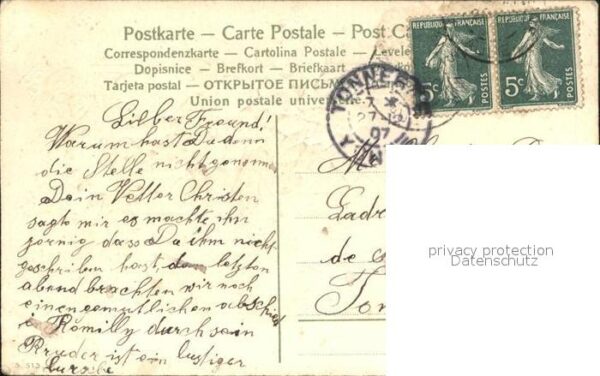 Postkarte – Carte Postale – Post Ca
Correspondenzkarte – Cartolina Postale – Levele
Dopisnice – Brefkort – Briefkaart
Tarjeta postal – ОТКРЫТОЕ ПИСЬМ
Union postale unive
REPUBLIQUE FRANÇAISE
5c
REPUBLIQUE FRANÇAISE
5c
TONNER
7
27
07
Y
Lilber Freund!
Warum hast Du denn
die Stelle nicht genomme
Dein Vetter Christen
sagte mir es machte ihn
zornig dass Du ihm nicht
geschriben hast, den letzten
abend brachten wir noch
einen gemutlichen abschied
i Romilly durch sein
Bruder ist ein lustiger
bursche
M
Cadr
de
Ton
privacy protection
Datenschutz